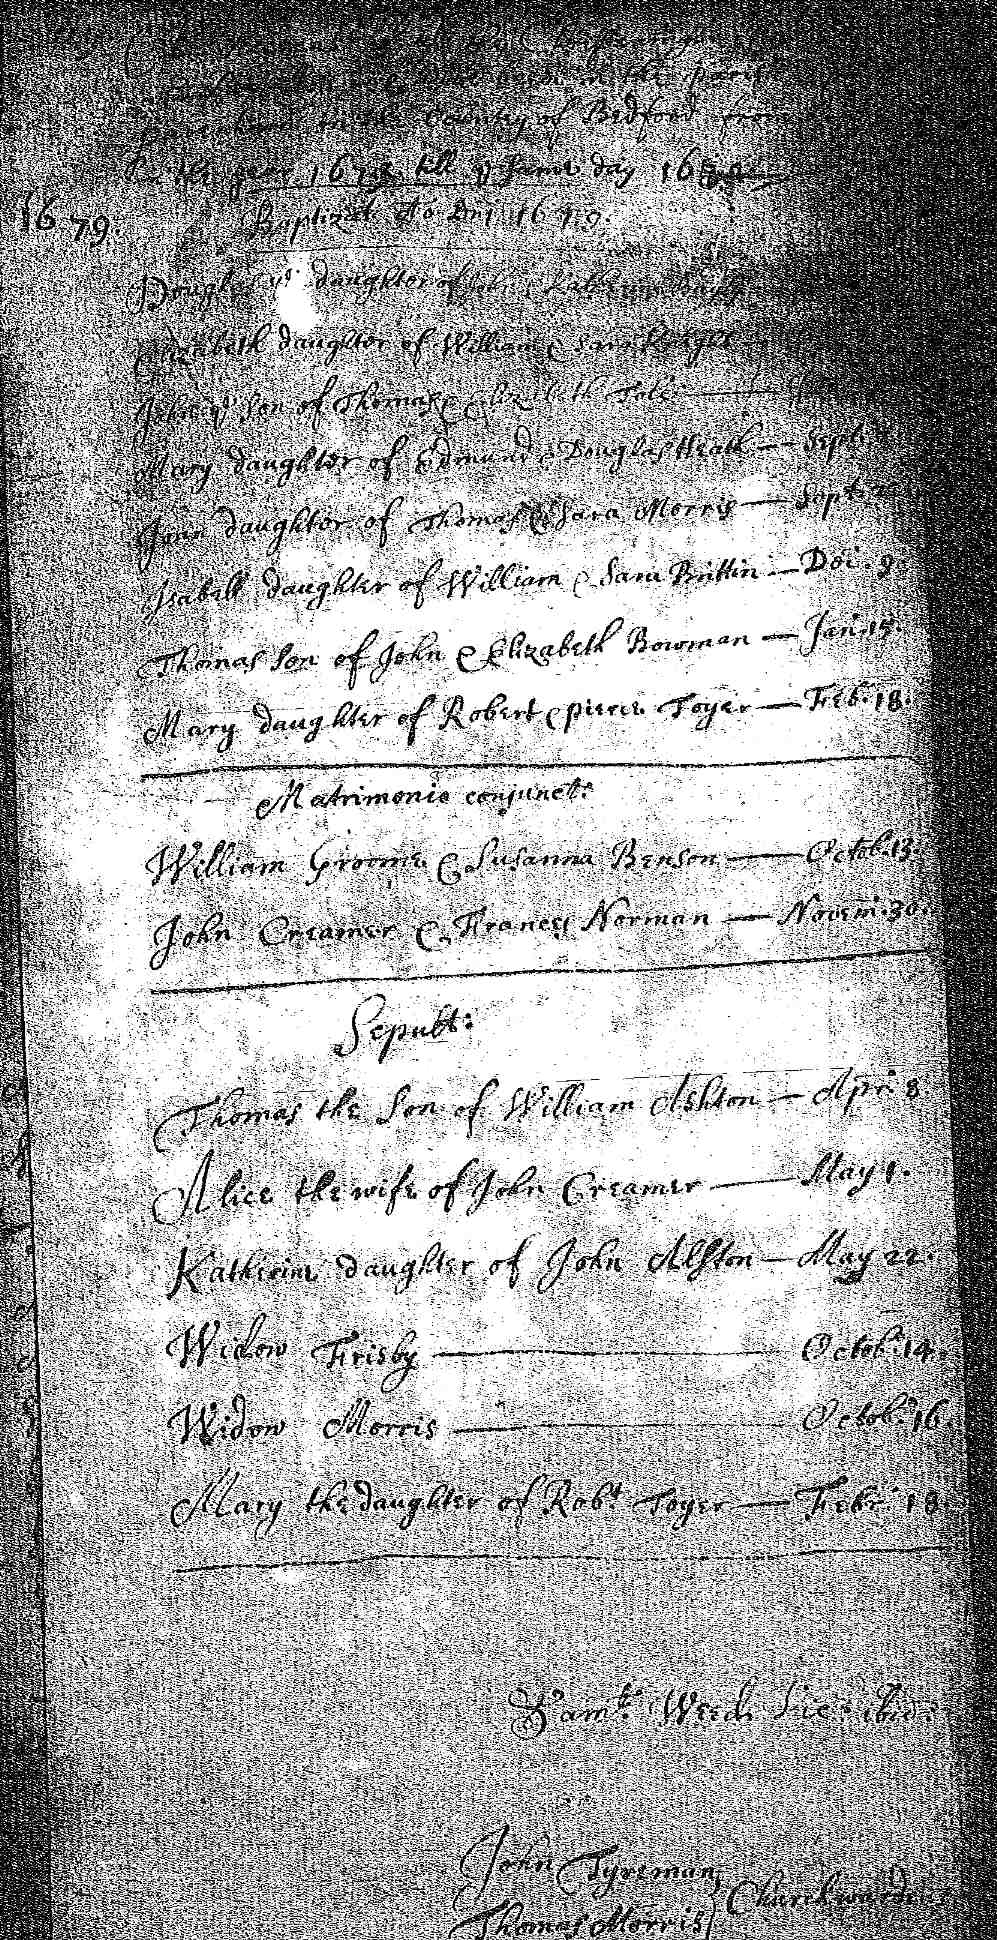 in the County of Bedford from
the year 1678 till ye same day 1679
1679.
Baptizat Ao Dni 1679.
Douglas ye daughter of John
Elizabeth daughter of William & Sara
John ye son of Thomas & Elizabeth
Mary daughter of Edmund & Douglas Heath — Sept.
daughter of Thomas & Sara Morris — Sept.
Isabell daughter of William & Sara Brittin — Dec. 9.
Thomas son of John & Elizabeth Bowman — Jan. 15.
Mary daughter of Robert & pierce Toyer — Feb. 18.
Matrimonio conjunct:
William Groome & Susanna Benson — Octob. 13.
John Creamer & Frances Norman — Novem. 30.
Sepult:
Thomas the Son of William Ashton — Apr. 8
Alice the wife of John Creamer — May 1.
Katherine daughter of John Alston — May 22.
Widow Frisby — Octob. 14.
Widow Morris — Octob. 16.
Mary the daughter of Robt Toyer — Febr. 18
Saml: ibid:
John Tyreman
Thomas Morris } Churchwardens